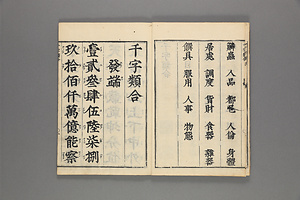 人品 人倫 身體
居處 調度 貨財 食器 雜器
服用 人事 物態
千字類合
發端
壹貳叄肆伍陸柒捌
玖拾佰仟萬億能察